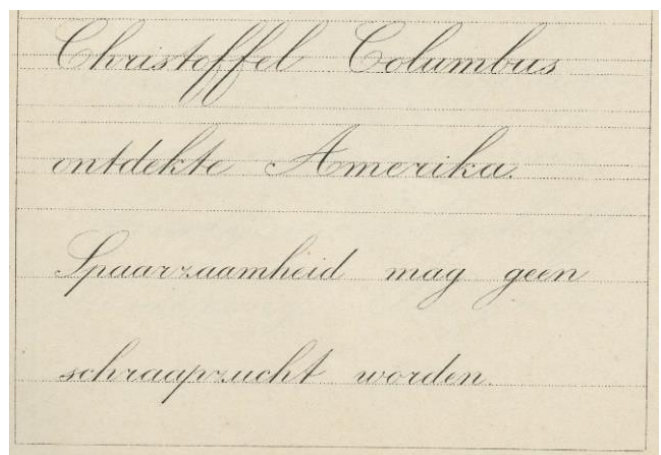 Christoffel Columbus
ontdekte Amerika.
Spaarzaamheid mag geen
schraapzucht worden.